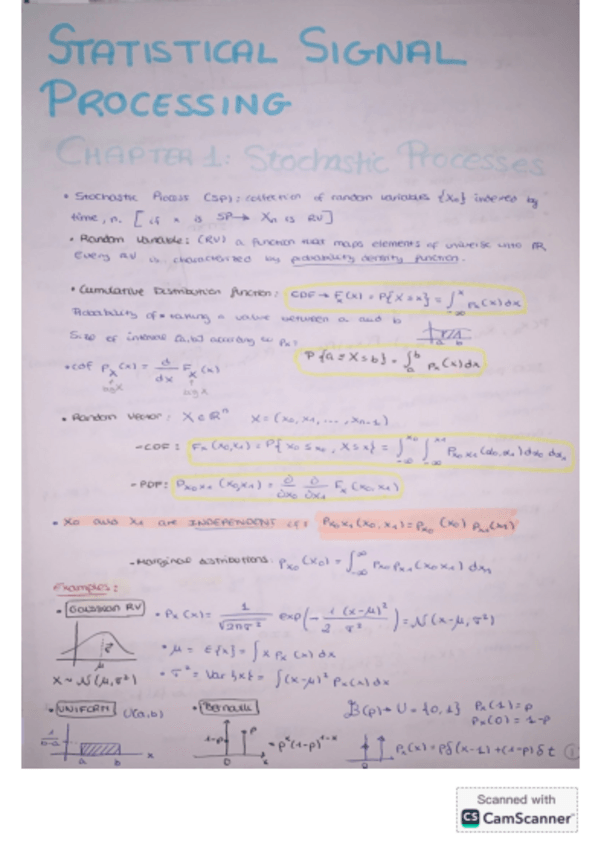 STATISTICAL SIGNAL
PROCESSING
CHAPTER 1: Stochastic Processes
• Stochastic Process (SP): collection of random variables {Xn} indexed by
time, n. [if x is SP → Xn is RV]
• Random Variable: (RV) a function that maps elements of universe into ℝ,
every RV is characterised by probability density function.
• Cumulative Distribution function: CDF → Fx(x) = P{X ≤ x} = ∫_{-∞}^{x} Px(x)dx
Probability of x taking a value between a and b
Size of interval [a,b] according to Px:
a b
P{a ≤ X ≤ b} = ∫_a^b Px(x)dx
• cdf Px(x) = d/dx Fx(x)
• Random Vector: X ∈ ℝⁿ X = (x0, x1, ..., xn-1)
- CDF: Fx(x0,x1) = P{x0 ≤ x0, X ≤ x} = ∫_{-∞}^{x0} ∫_{-∞}^{x1} Px0x1(x0,x1) dx0 dx1
- PDF: Px0x1(x0,x1) = ∂/∂x0 ∂/∂x1 Fx(x0,x1)
• X0 and X1 are INDEPENDENT if: Px0x1(x0,x1) = Px0(x0) Px1(x1)
- Marginal distributions: Px0(x0) = ∫_{-∞}^{∞} Px0Px1(x0x1) dx1
Examples:
• GAUSSIAN RV • Px(x) = 1/√(2πσ²) exp(-1/2 (x-μ)²/σ²) = N(x-μ,σ²)
μ
• μ = E{x} = ∫ x Px(x) dx
X ~ N(μ,σ²) • σ² = Var{x} = ∫(x-μ)² Px(x)dx
• UNIFORM U(a,b) • Bernoulli B(p) → U = {0,1} Px(1) = p
Px(0) = 1-p
1/(b-a) a b x
1-p p 0 x = p^x(1-p)^(1-x)
0 Px(x) = pδ(x-1) + (1-p)δt 1
Scanned with
CS CamScanner